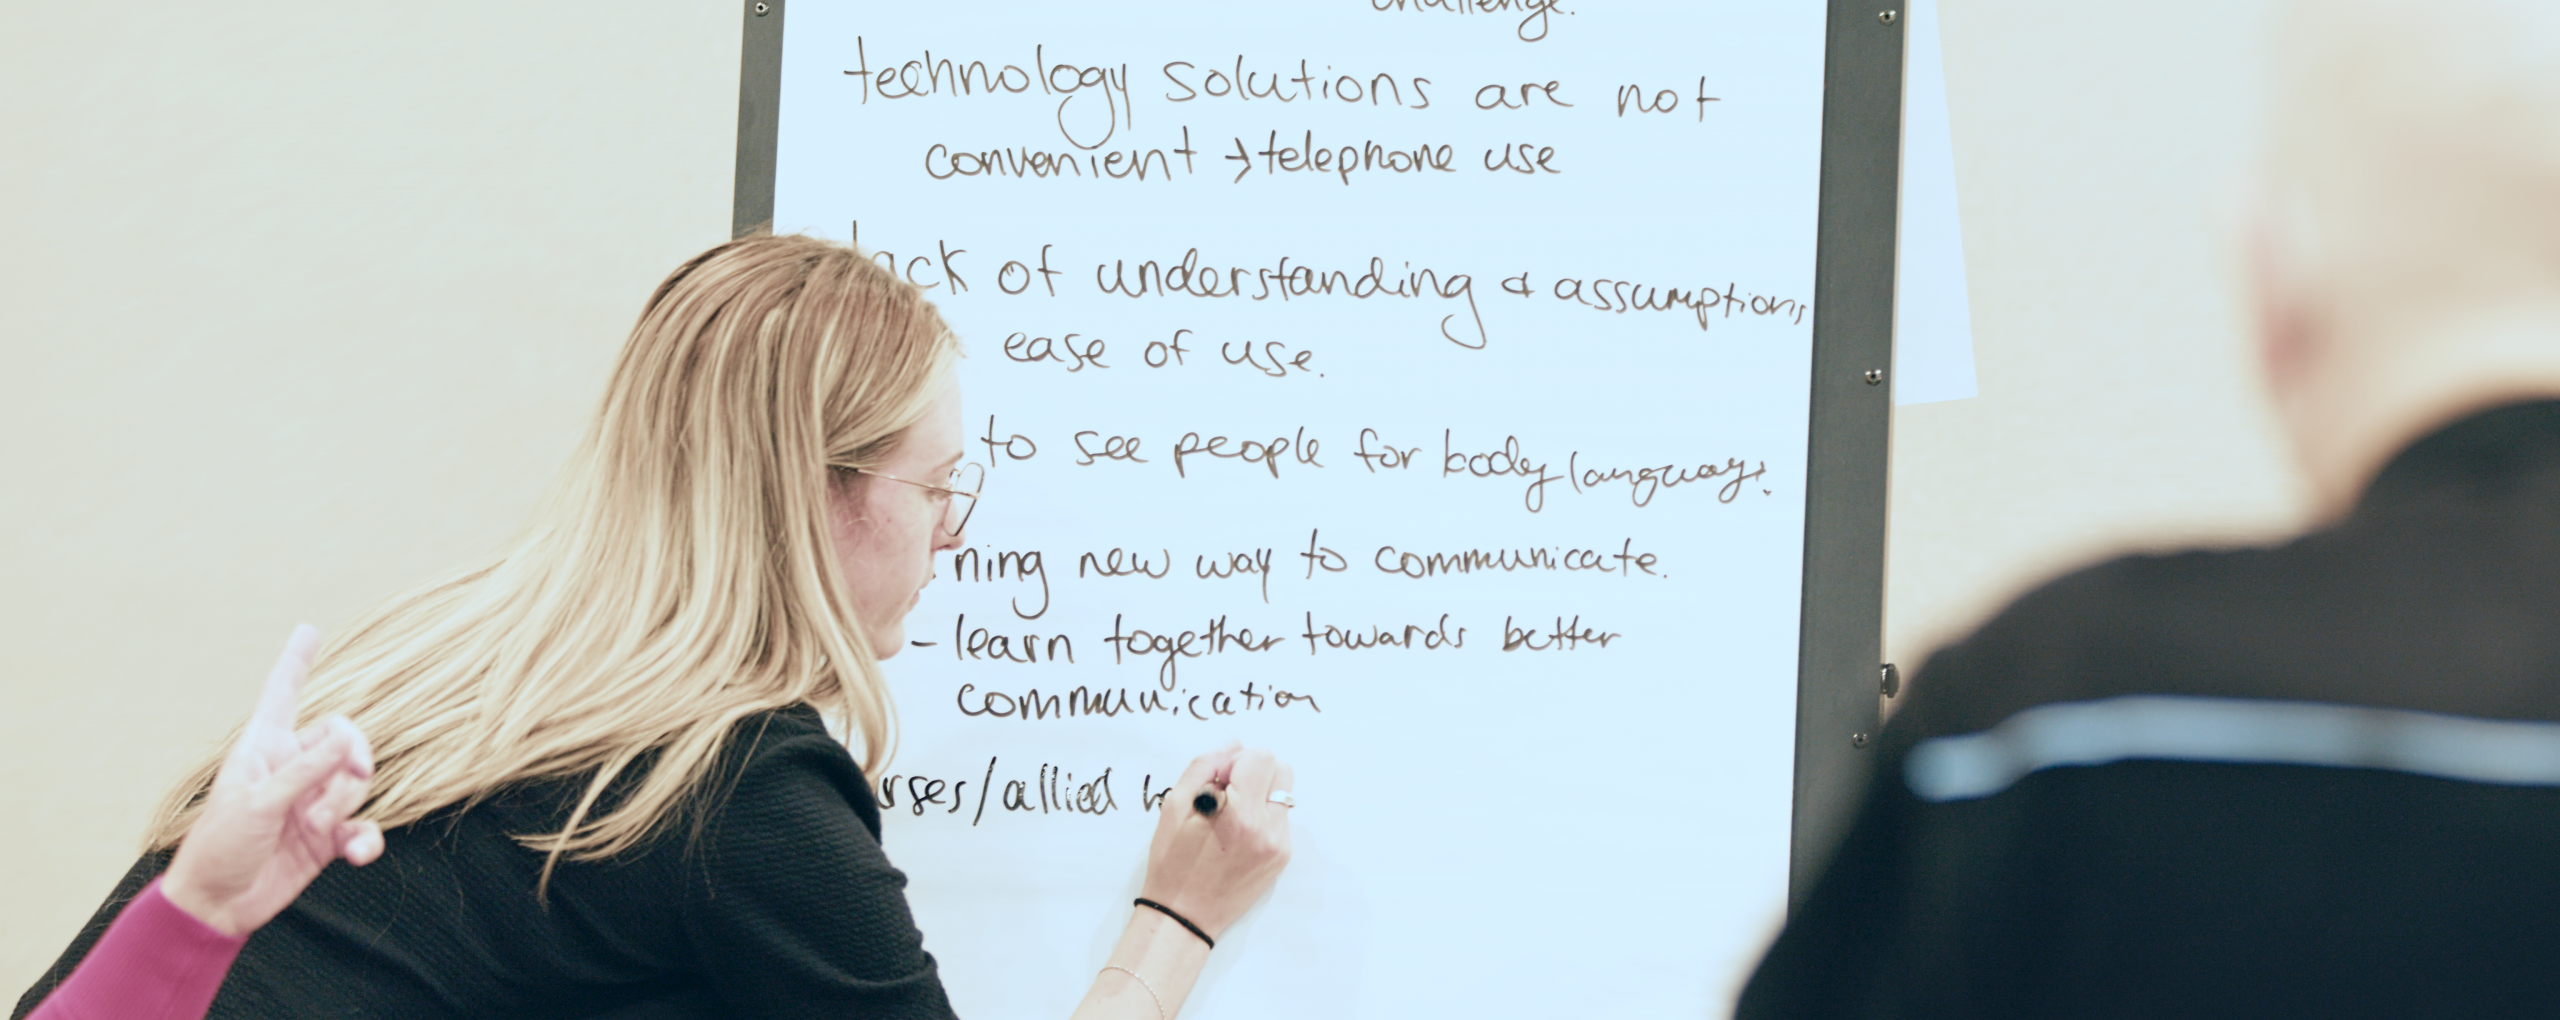 challenge.
technology solutions are not
convenient → telephone use
lack of understanding & assumptions
ease of use.
to see people for body language.
ning new way to communicate.
- learn together towards better
communication
rses/allied